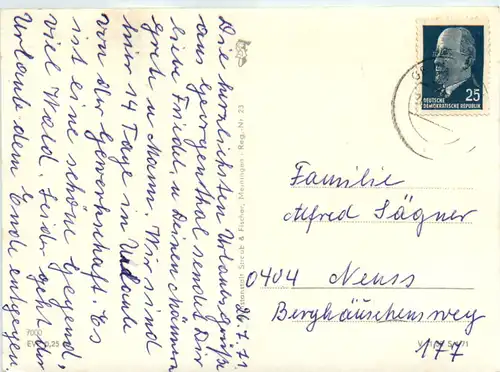 Die herzlichsten Urlaubsgrüße
aus Georgenthal sendet Dir
liebe Friedel, u Deinen Männern
Gret u Mann. Wir sind
hier 14 Tage in Urlaub
von der Gewerkschaft. Es
ist eine schöne Gegend,
viel Wald. Leider geht der
Urlaub dem Ende entgegen
26.7.71
25
DEUTSCHE
DEMOKRATISCHE REPUBLIK
Familie
Alfred Sägner
0404 Neuss
Berghäuschensweg
177
Straub & Fischer, Meiningen · Reg.-Nr. 23